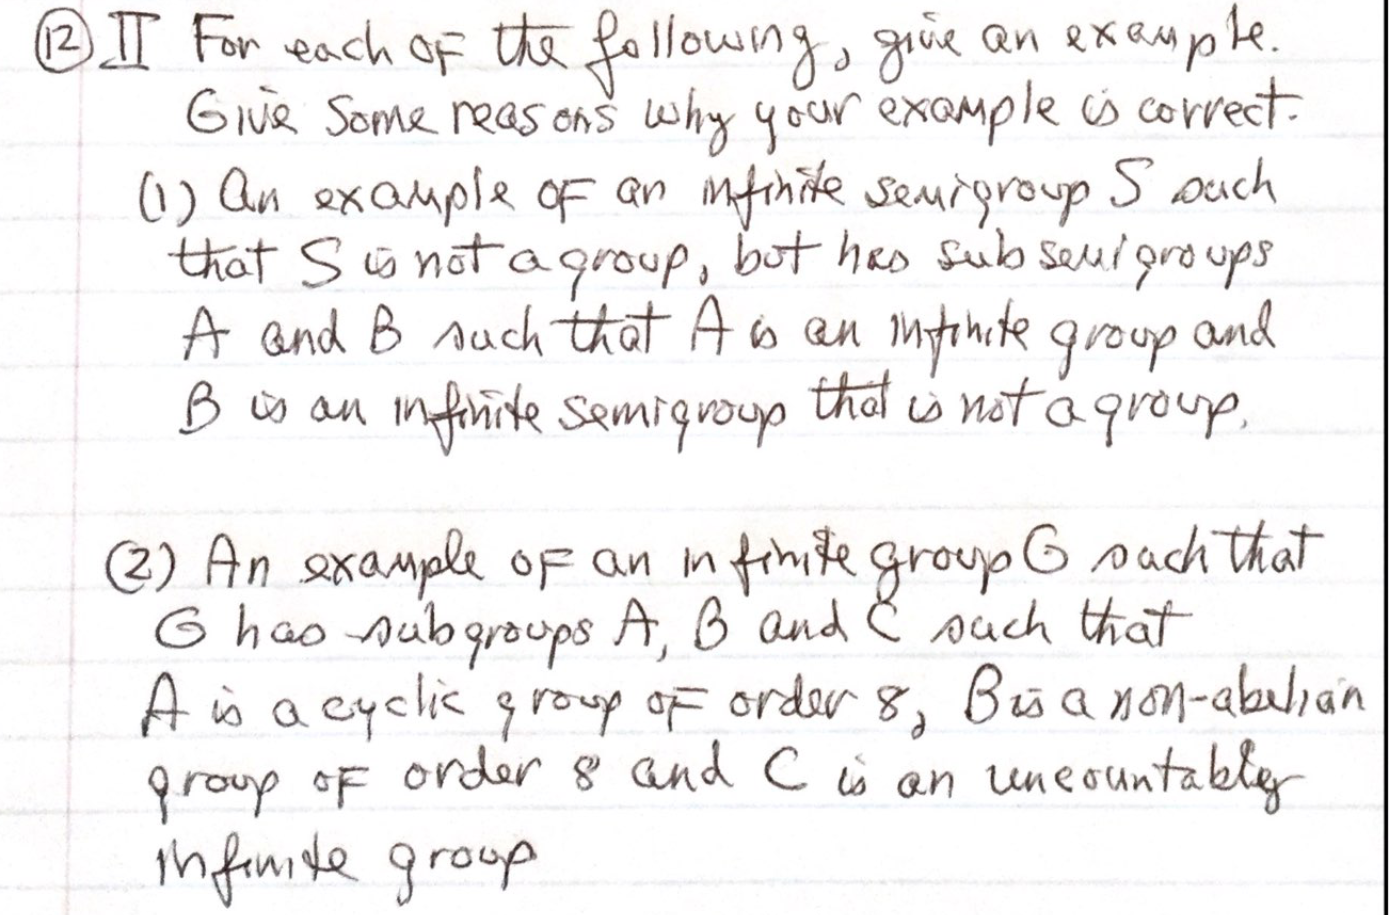 ⑫ II For each of the following, give an example.
Give Some reasons why your example is correct.
(1) An example of an infinite semigroup S such
that S is not a group, but has subsemigroups
A and B such that A is an infinite group and
B is an infinite semigroup that is not a group.
(2) An example of an infinite group G such that
G has subgroups A, B and C such that
A is a cyclic group of order 8, B is a non-abelian
group of order 8 and C is an uncountably
infinite group